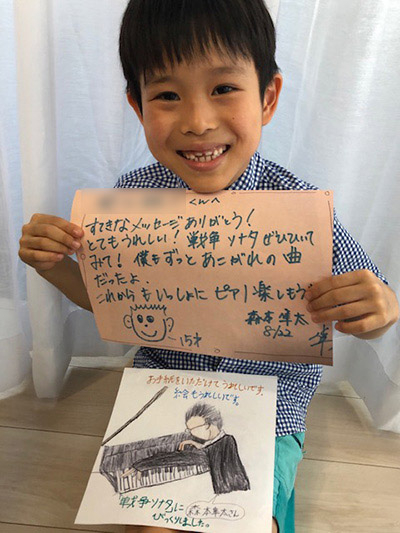 くんへ
すてきなメッセージありがとう!
とてもうれしい! 戦争ソナタぜひひいて
みて! 僕もずっとあこがれの曲
だったよ。
これからもいっしょにピアノ楽しもう
森本隼太
8/22
15才
お手紙をいただけてうれしいです。
絵もうれしいです。
戦争ソナタに
びっくりしました。
森本隼太さん